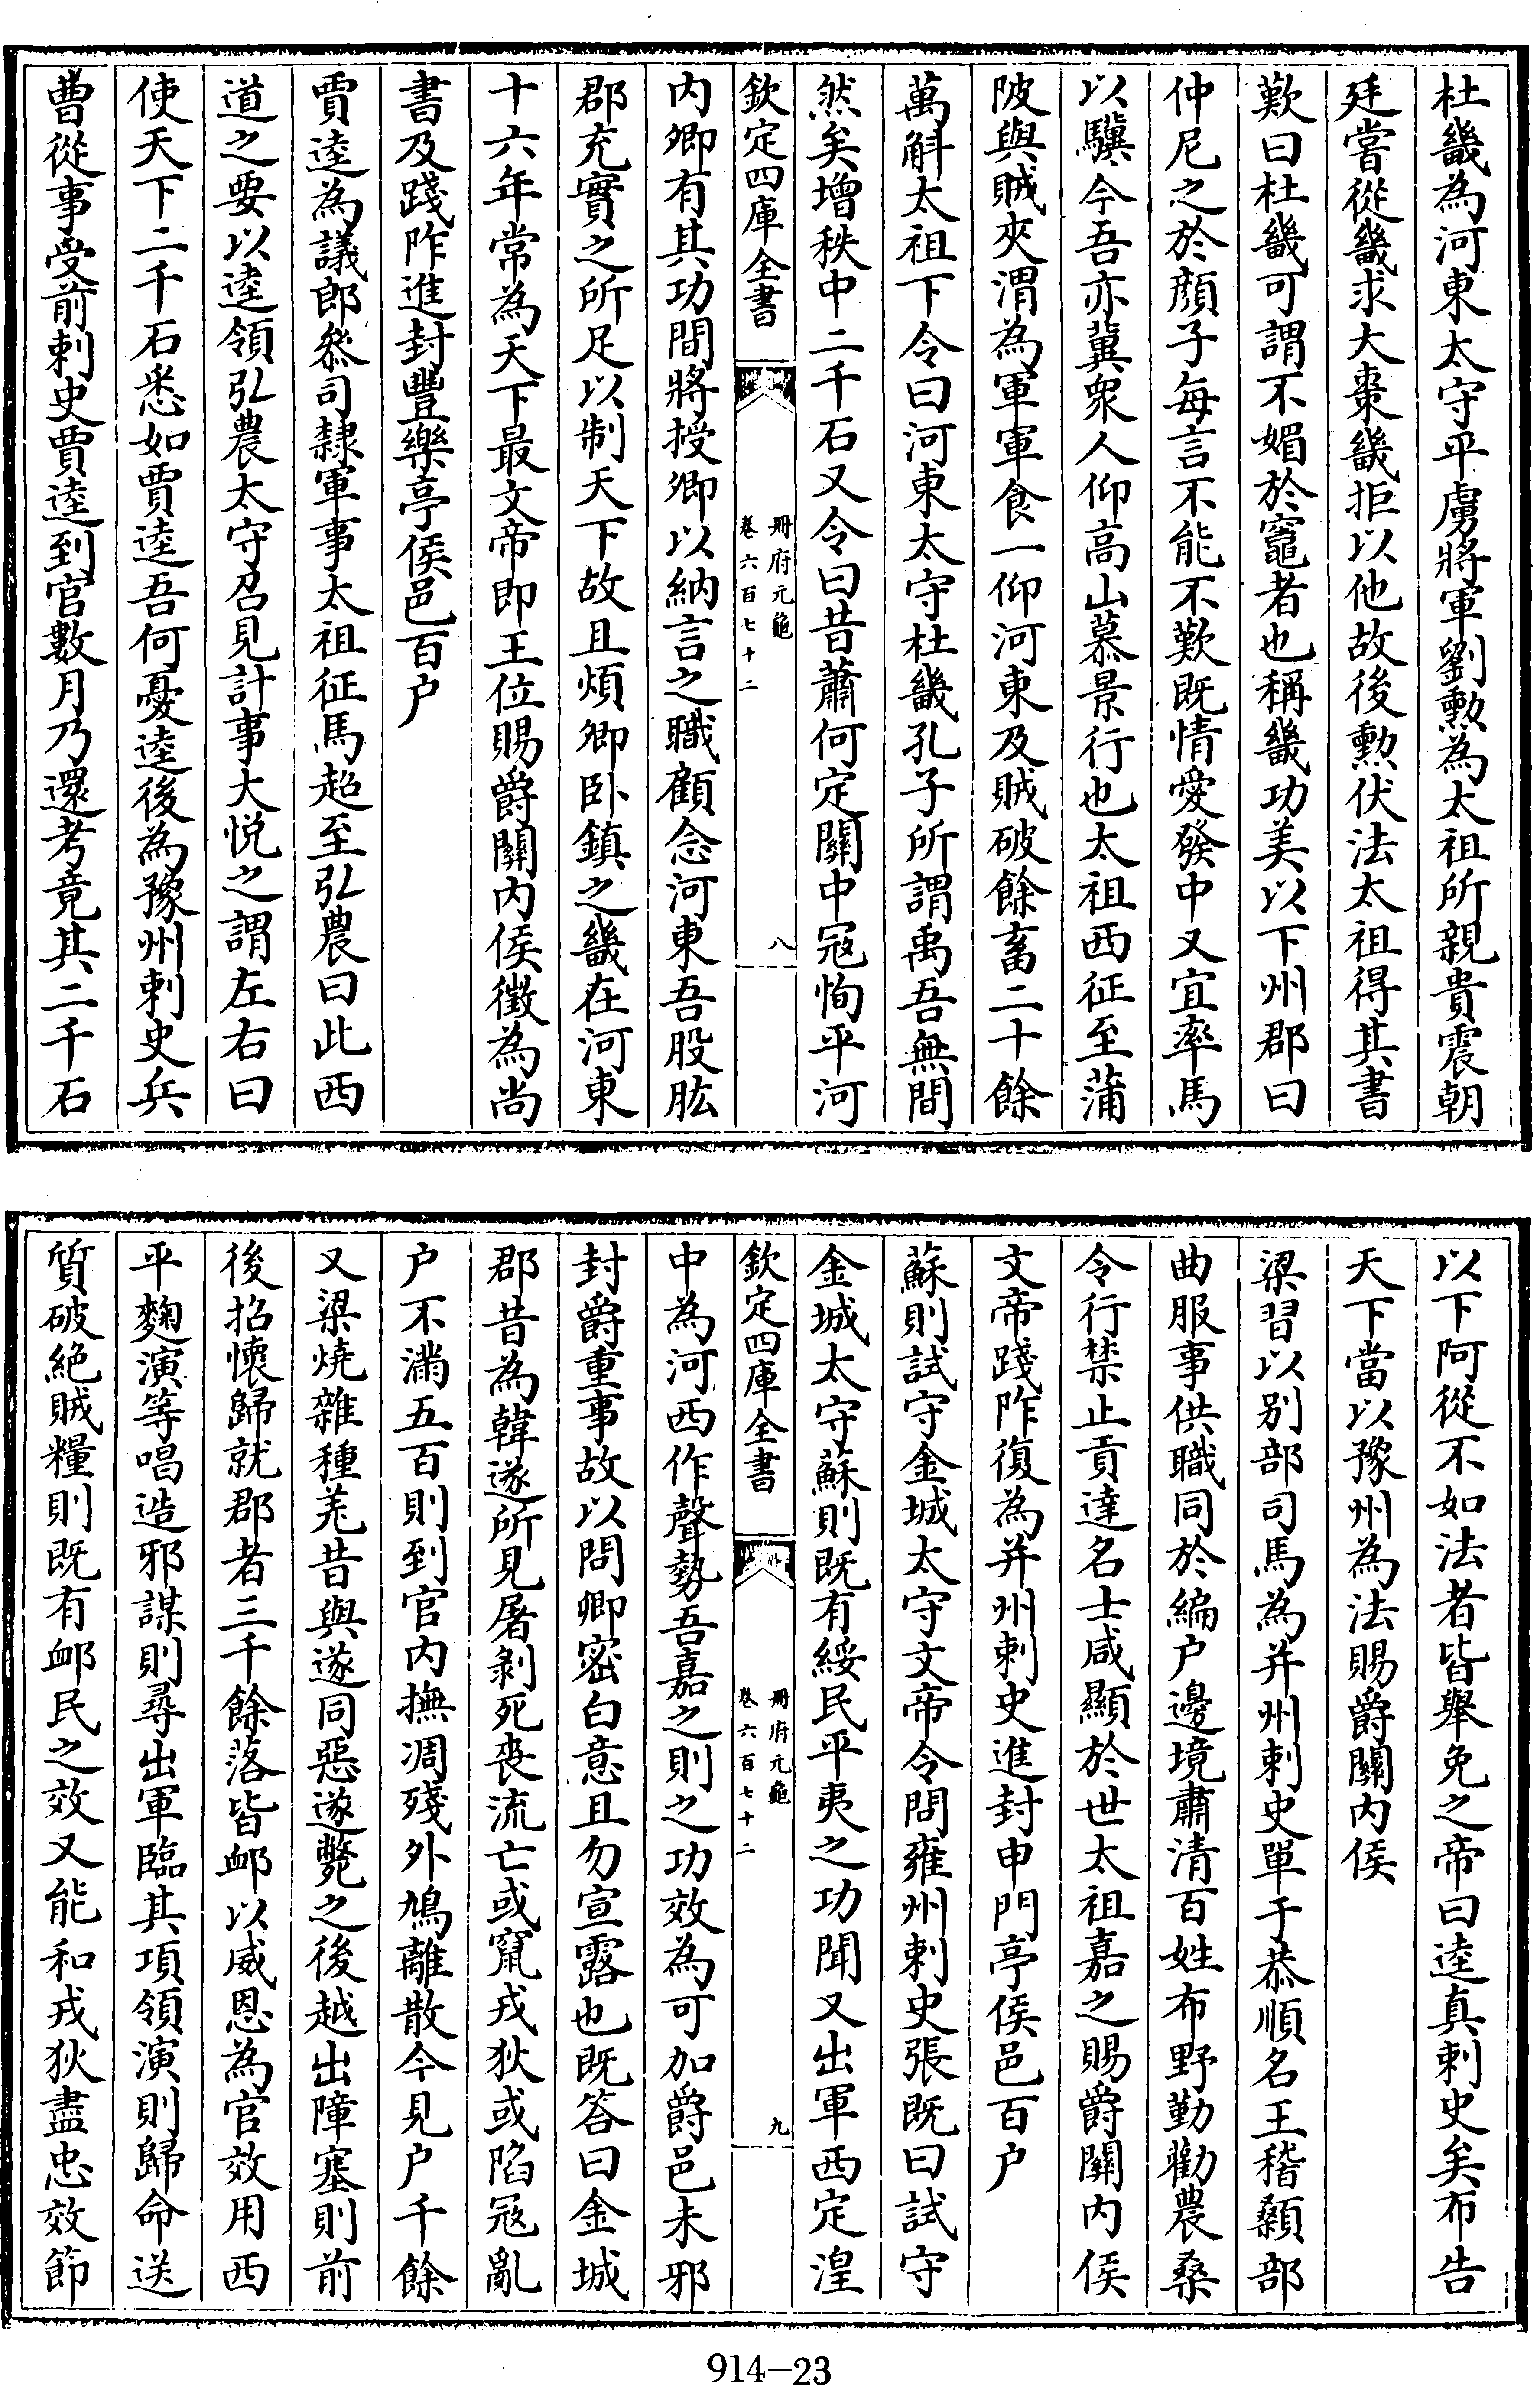 杜畿為河東太守平虜將軍劉勲為太祖所親貴震朝
廷嘗從畿求大棗畿拒以他故後勲伏法太祖得其書
歎曰杜畿可謂不媚於竈者也稱畿功美以下州郡曰
仲尼之於顔子每言不能不歎既情愛發中又宜率馬
以驥今吾亦冀衆人仰高山慕景行也太祖西征至蒲
陂與賊夾渭為軍軍食一仰河東及賊破餘畜二十餘
萬斛太祖下令曰河東太守杜畿孔子所謂禹吾無間
然矣增秩中二千石又令曰昔蕭何定關中冦恂平河
欽定四庫全書
册府元龜
卷六百七十二
八
内卿有其功間將授卿以納言之職顧念河東吾股肱
郡充實之所足以制天下故且煩卿卧鎮之畿在河東
十六年常為天下最文帝即王位賜爵關内侯徵為尚
書及踐阼進封豐樂亭侯邑百户
賈逵為議郎叅司隸軍事太祖征馬超至弘農曰此西
道之要以逵領弘農太守召見計事大悅之謂左右曰
使天下二千石悉如賈逵吾何憂逵後為豫州刺史兵
曹從事受前刺史賈逵到官數月乃還考竟其二千石
以下阿從不如法者皆舉免之帝曰逵真刺史矣布告
天下當以豫州為法賜爵關内侯
梁習以别部司馬為并州刺史單于恭順名王稽顙部
曲服事供職同於編户邊境肅清百姓布野勤勸農桑
令行禁止貢達名士咸顯於世太祖嘉之賜爵關内侯
文帝踐阼復為并州刺史進封申門亭侯邑百户
蘇則試守金城太守文帝令問雍州刺史張既曰試守
金城太守蘇則既有綏民平夷之功聞又出軍西定湟
欽定四庫全書
册府元龜
卷六百七十二
九
中為河西作聲勢吾嘉之則之功效為可加爵邑未邪
封爵重事故以問卿密白意且勿宣露也既答曰金城
郡昔為韓遂所見屠剝死喪流亡或竄戎狄或陷冦亂
户不滿五百則到官内撫凋殘外鳩離散今見户千餘
又梁燒雜種羌昔與遂同惡遂斃之後越出障塞則前
後招懷歸就郡者三千餘落皆䘏以威恩為官效用西
平麴演等唱造邪謀則尋出軍臨其項領演則歸命送
質破絶賊糧則既有䘏民之效又能和戎狄盡忠效節
914-23